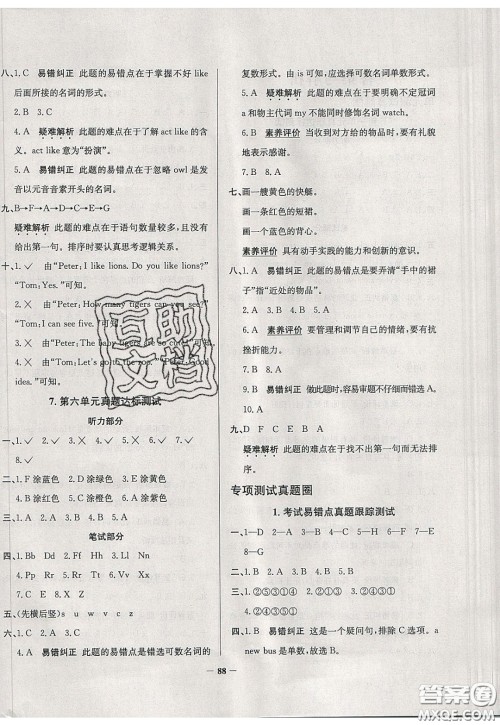 八、1. C 易错纠正 此题的易错点在于掌握不好 like
后面所接的名词的形式。
2. B 3. C
4. A 疑难解析 此题的难点在于了解 act like 的含
义。act like 意为“扮演”。
5. A 易错纠正 此题的易错点在于忽略 owl 是发
音以元音音素开头的名词。
九、B→F→A→D→C→E→G
疑难解析 此题的难点在于语句数量较多,且没有
给出第一句。排序时要认真思考逻辑关系。
十、1. ✓ 由“Peter: I like lions. Do you like lions?”
“Tom: Yes.”可知。
2. × 由“Peter: How many tigers can you see?”
“Tom: I can see five.”可知。
3. × 由“Peter: The baby
4. × 由“Tom: Let's go to the zoo.”
Yes.”可知。
7. 第六单元真题达标测试
听力部分
一、1. ✓ 2. × 3. × 4. ✓ 5. ✓ 6. ✓
7. × 8. ✓
二、1. F 涂蓝色 2. D 涂绿色 3. B 涂黄色
4. E 涂蓝色 5. C 涂橙色 6. A 涂紫色
三、1. A 2. B 3. A 4. A 5. B
笔试部分
四、1. Bb Dd 2. Ff Hh 3. Ii Ll
4. Pp Rr 5. Tt Xx 6. Yy Zz
五、(先横后竖) s u w v c z
六、1. C 2. A 3. C
4. A 易错纠正 此题的易错点是错选可数名词的
复数形式。由 is 可知,应选择可数名词单数形式。
5. A 疑难解析 此题的难点在于要明确不定冠词
a 和物主代词 my 不能同时修饰名词 watch。
6. B 素养评价 当收到对方给的物品时,要有礼貌
地表示感谢。
7. B 8. A 9. B 10. B
七、画一艘黄色的快艇。
画一条红色的短裙。
画一个蓝色的箱子。
画一条白色的裤子。
素养评价 具有动手实践的能力和创新的意识。
八、1. A 易错纠正 此题的易错点是要弄清“手中的裙
子”指“近处的物品”。
2. A 3. A 4. B
5. A 素养评价 要管理和调节自己的情绪,要有抗
挫折能力。
6. B 易错纠正 做此题时,容易审题不仔细而错选 A。
7. A 8. A 9. A 10. A
九、D F C E B A
疑难解析 此题的难点在于找不出第一句而无法排
序。
专项测试真题圈
1. 考试易错点真题跟踪测试
一、1—D 2—A 3—C 4—B 5—E 6—H 7—F
8—G
二、1. C 2. A 3. B 4. A 5. B
三、1. ②⑤③①④
四、1. B 易错纠正 这是一个疑问句,排除 C 选项。a
new bus 是单数,故选 B。
88
百助文档
答案圈
MXQE.COM